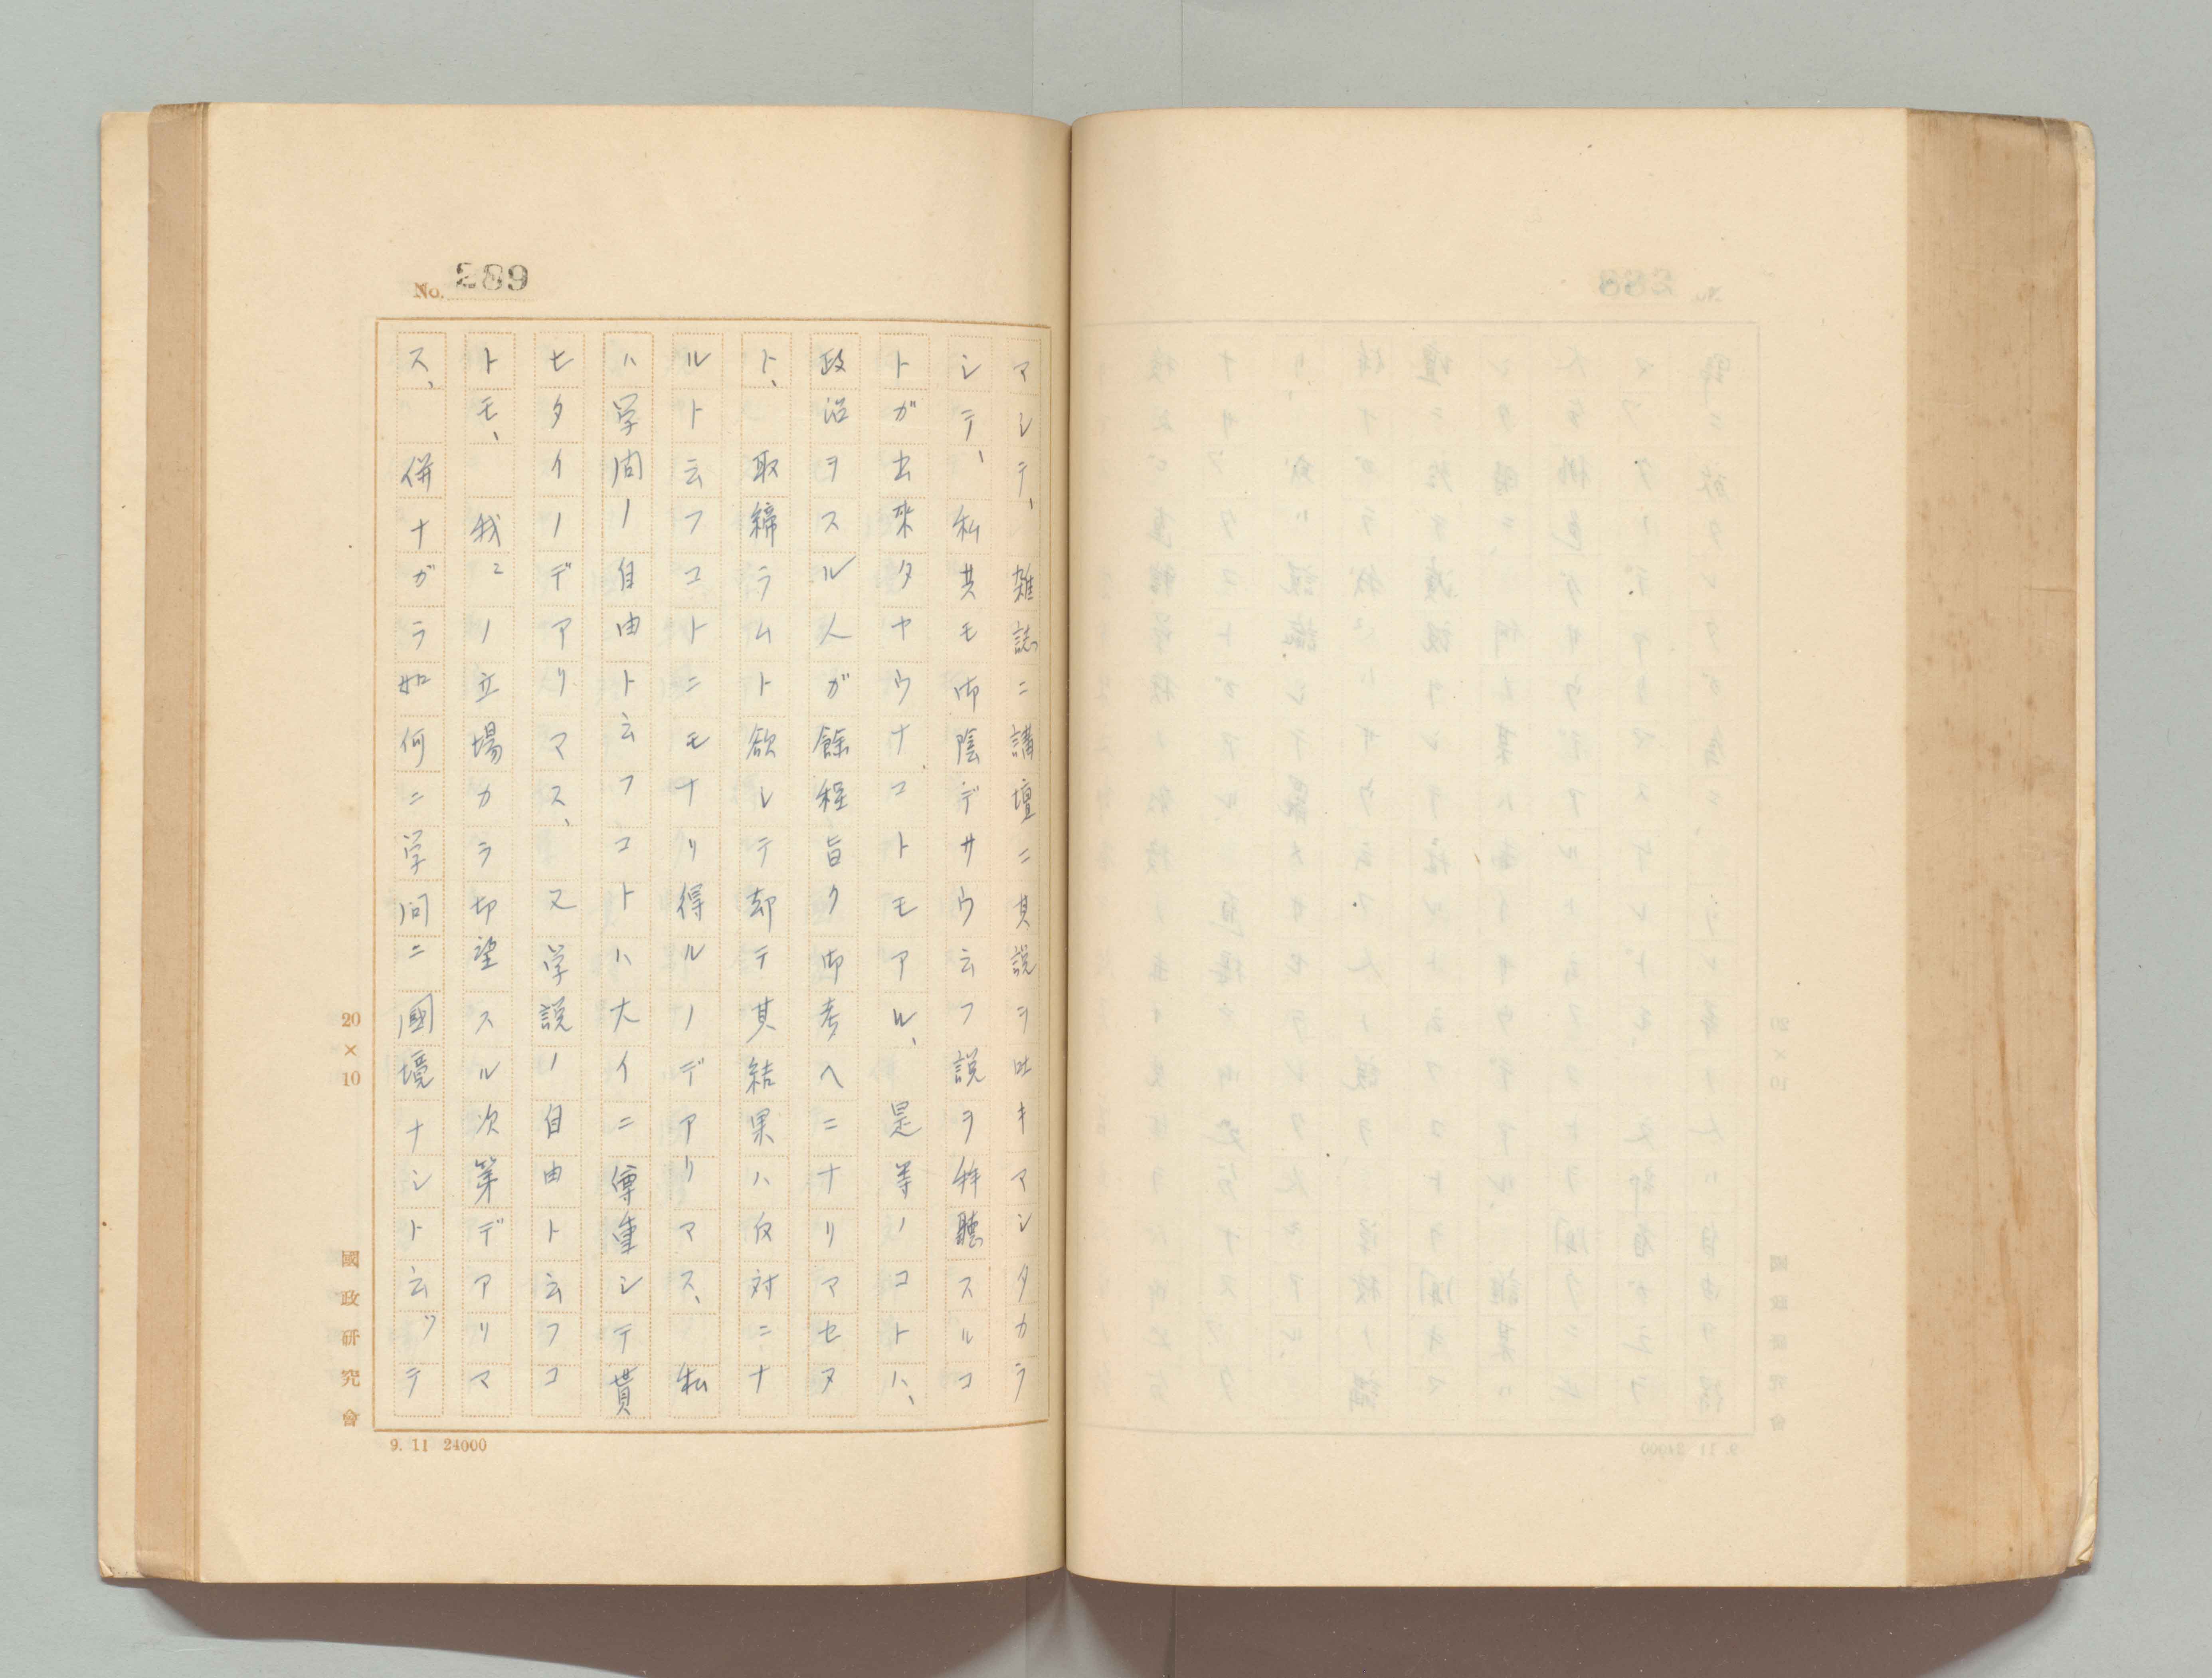 No. 289
マシテ、雑誌ニ講壇ニ其説ヲ吐キマシタカラ
シテ、私共モ御陰デサウ云フ説ヲ拝聴スルコ
トガ出来タヤウナコトモアル、是等ノコトハ、
政治ヲスル人ガ餘程旨ク御考ヘニナリマセヌ
ト、取締ラムト欲シテ却テ其結果ハ反対ニナ
ルト云フコトニモナリ得ルノデアリマス、私
ハ学問ノ自由ト云フコトハ大イニ尊重シテ貰
ヒタイノデアリマス、又学説ノ自由ト云フコ
トモ、我々ノ立場カラ切望スル次第デアリマ
ス、併ナガラ如何ニ学問ニ國境ナシト云ツテ
20×10
國政研究會
9. 11 24000